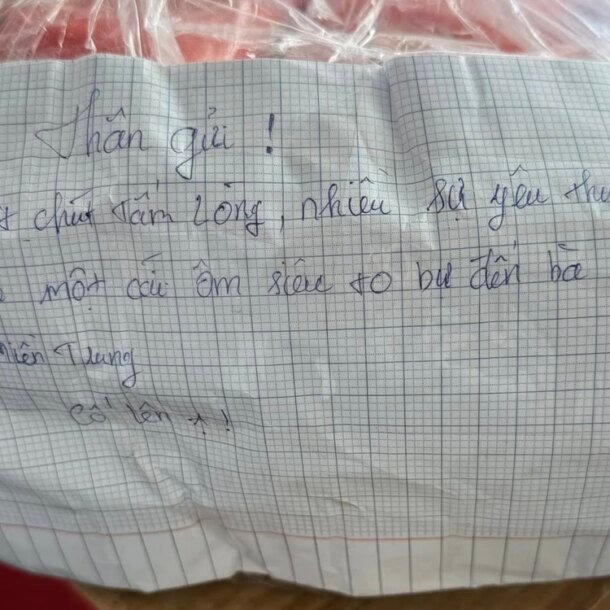 Thân gửi !
chút tấm lòng, nhiều sự yêu
một cái ôm siêu to bự đến bà
Miền Trung
Cố lên ạ !